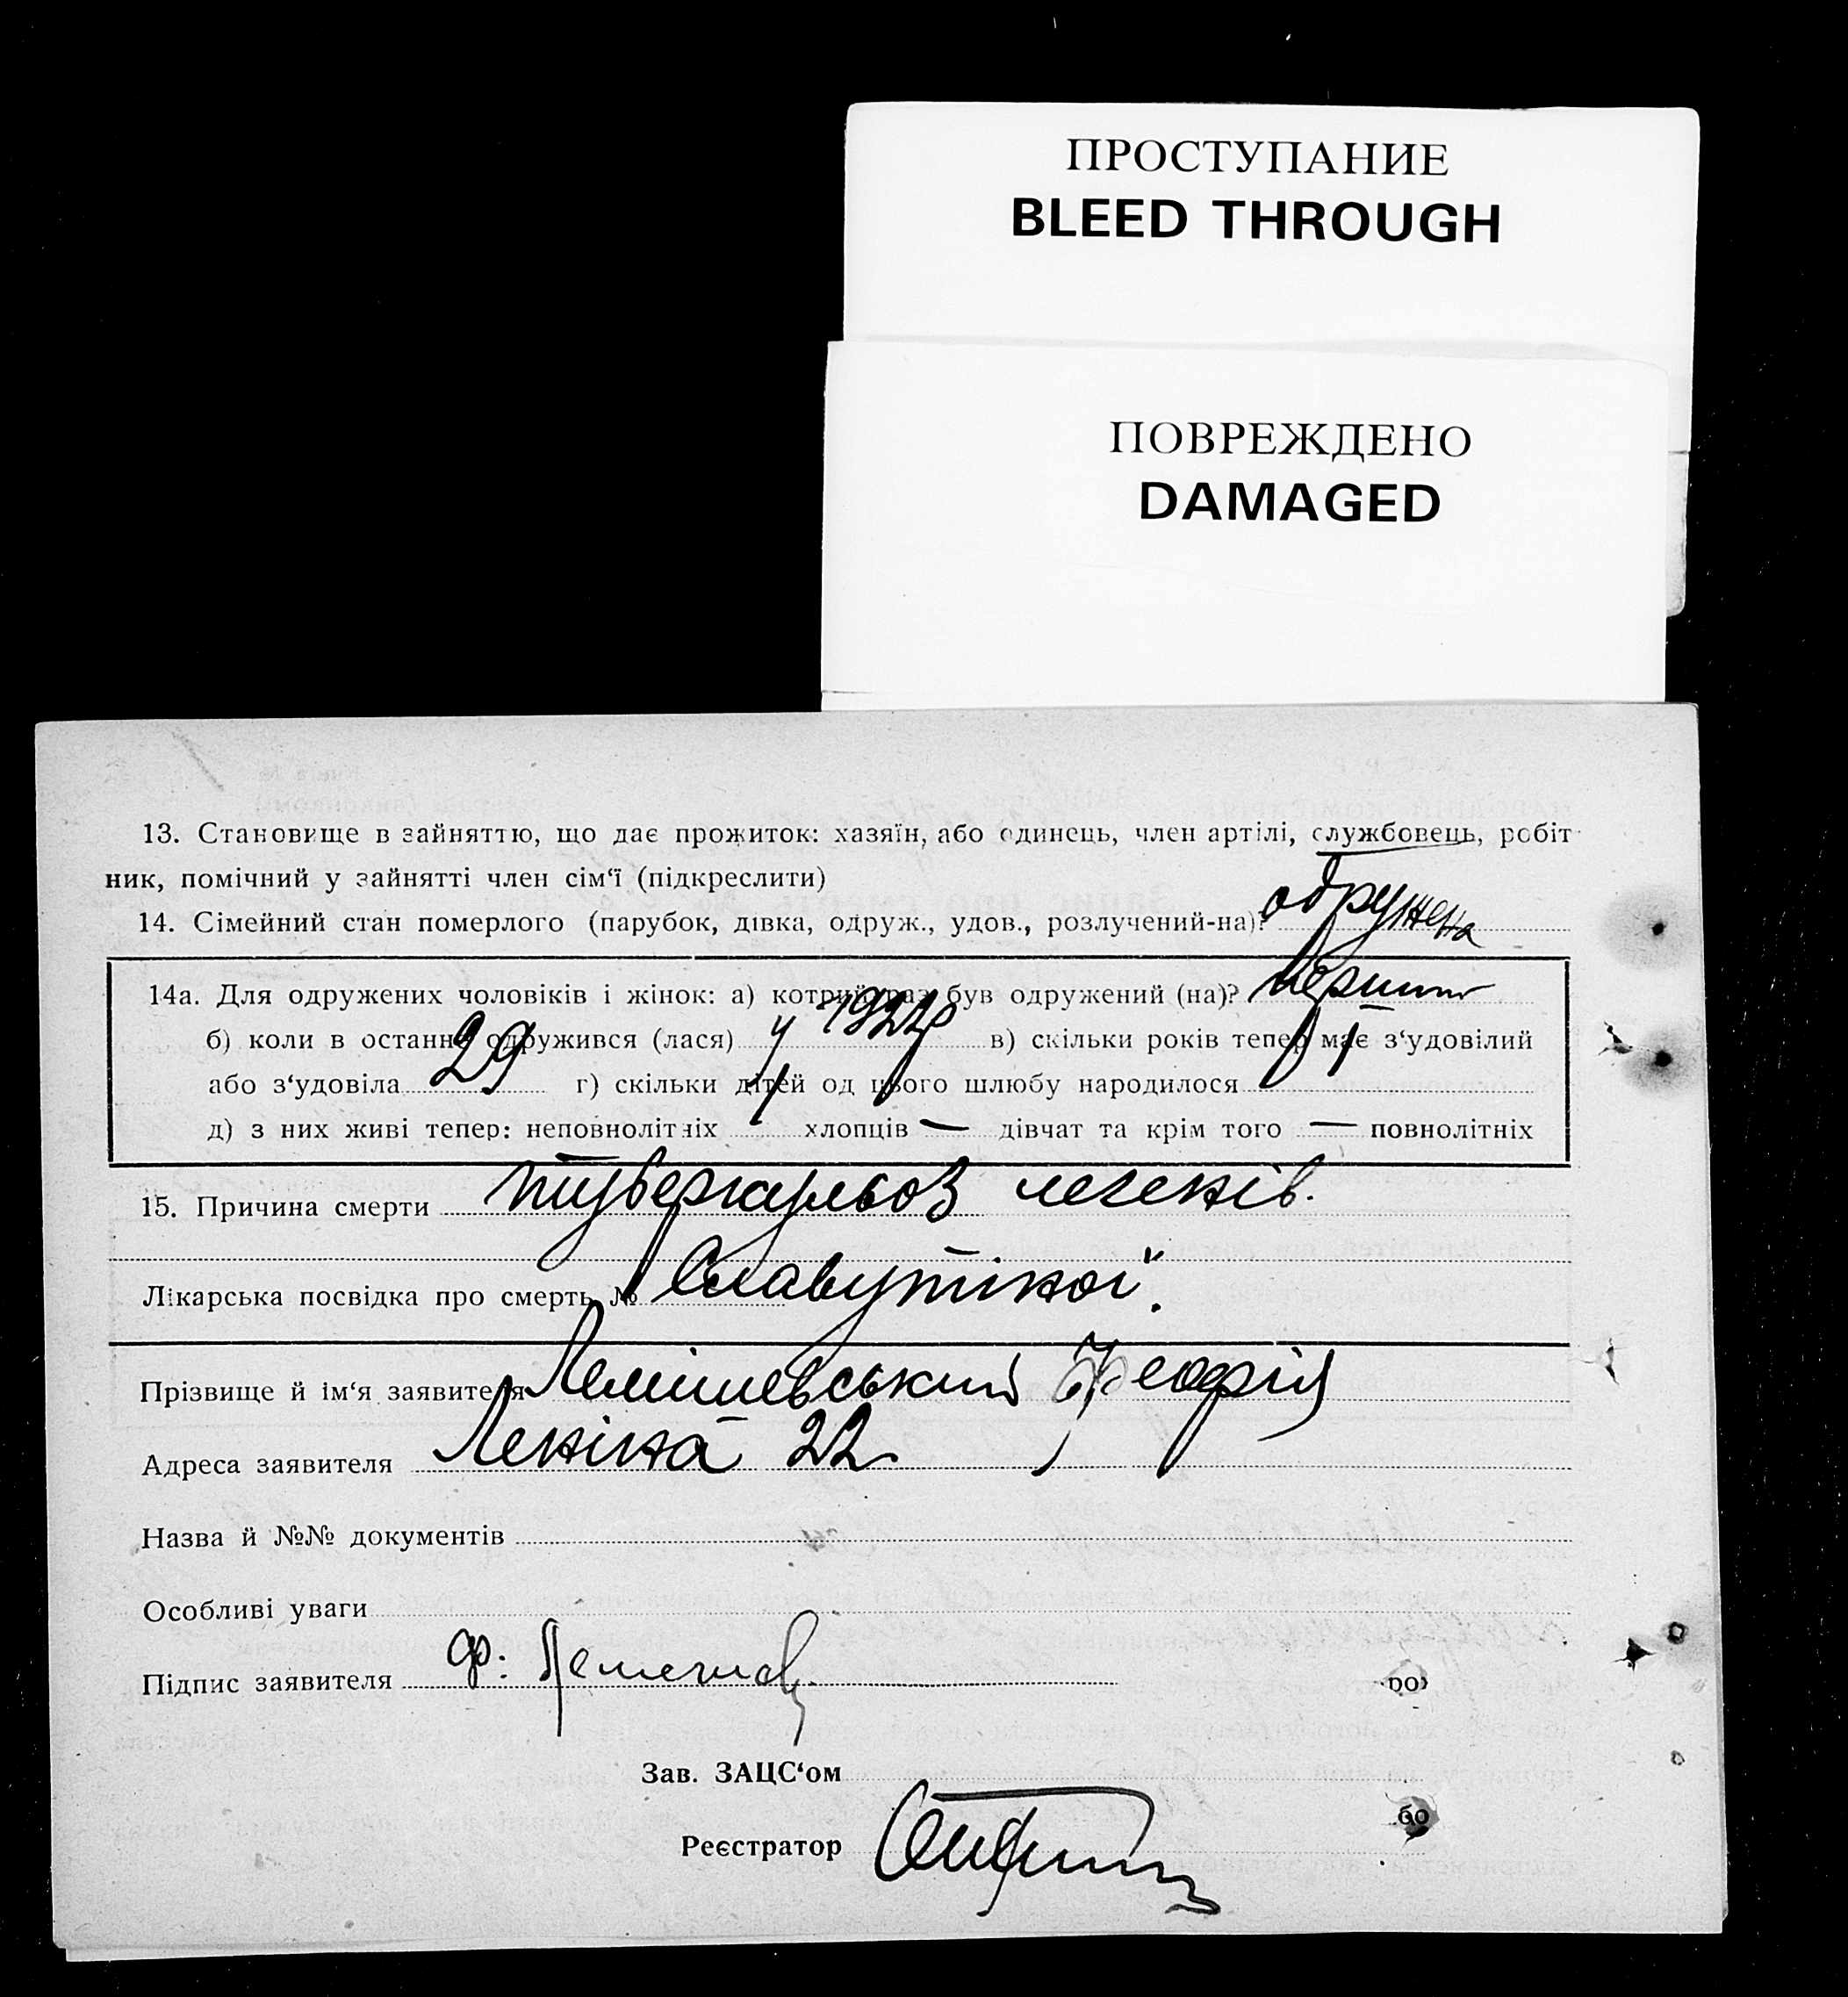 ПРОСТУПАНИЕ
BLEED THROUGH
ПОВРЕЖДЕНО
DAMAGED
13. Становище в зайняттю, що дає прожиток: хазяїн, або одинець, член артілі, службовець, робіт-
ник, помічний у зайнятті член сім'ї (підкреслити)
14. Сімейний стан померлого (парубок, дівка, одруж., удов., розлучений-на)? одружена
14а. Для одружених чоловіків і жінок: а) котрий раз був одружений (на)? перший
б) коли в останнє одружився (лася) у 192 р в) скільки років тепер має з'удовілий
або з'удовіла 29 г) скільки дітей од цього шлюбу народилося 1
д) з них живі тепер: неповнолітніх 1 хлопців — дівчат та крім того — повнолітніх
15. Причина смерти туберкульоз легенів.
Лікарська посвідка про смерть № Славутікої.
Прізвище й ім'я заявителя Лемішевський
Адреса заявителя Леніна 22
Назва й №№ документів
Особливі уваги
Підпис заявителя Ф:
Зав. ЗАЦС'ом
Реєстратор